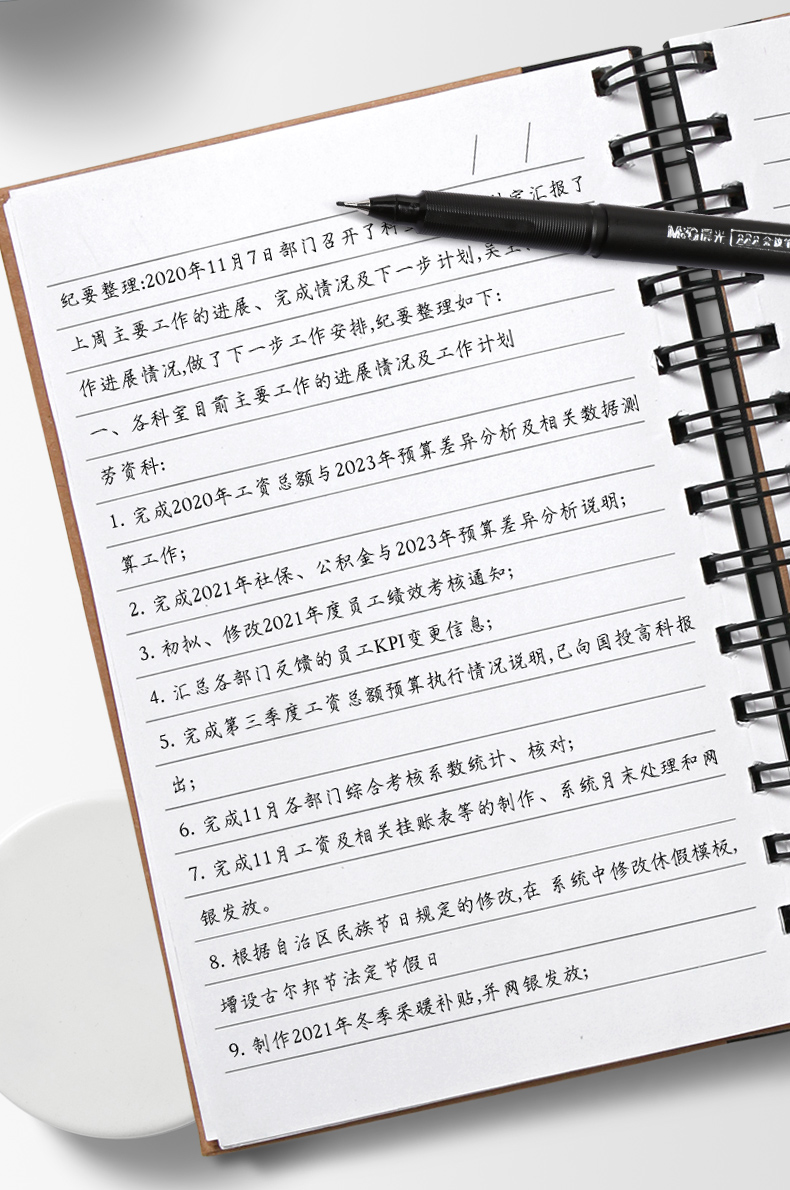 纪要整理:2020年11月7日部门召开了科室汇报了
上周主要工作的进展、完成情况及下一步计划,吴
作进展情况,做了下一步工作安排,纪要整理如下:
一、各科室目前主要工作的进展情况及工作计划
劳资科:
1. 完成2020年工资总额与2023年预算差异分析及相关数据测
算工作;
2. 完成2021年社保、公积金与2023年预算差异分析说明;
3. 初拟、修改2021年度员工绩效考核通知;
4. 汇总各部门反馈的员工KPI变更信息;
5. 完成第三季度工资总额预算执行情况说明,已向国投高科报
出;
6. 完成11月各部门综合考核系数统计、核对;
7. 完成11月工资及相关挂账表等的制作、系统月末处理和网
银发放。
8. 根据自治区民族节日规定的修改,在 系统中修改休假模板,
增设古尔邦节法定节假日
9. 制作2021年冬季采暖补贴,并网银发放;
M&G晨光